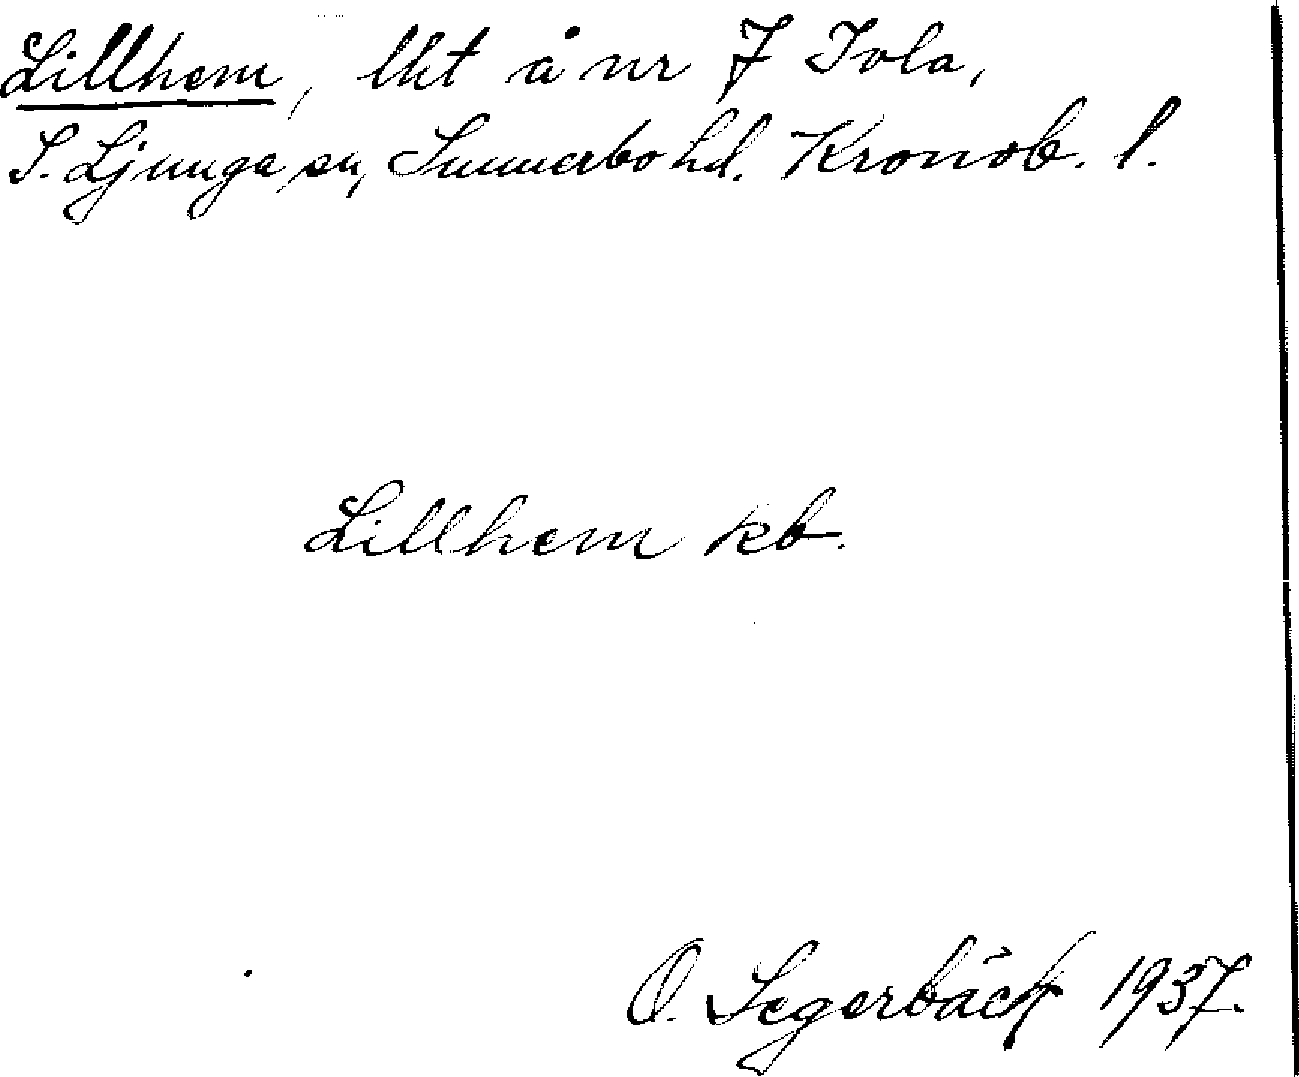 Lillhem, lht å nr 7 Ivla,
S. Ljunga sn, Sunnerbo hd. Kronob. l.
Lillhem kb.
O. Segerbäck 1937.